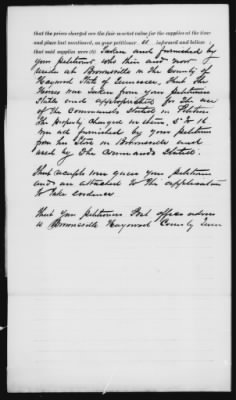 that the prices charged are the fair market value for the supplies at the time
and place last mentioned, as your petitioner is informed and believes
that said supplies were (6) Taken and furnished by
your petitioner who then and now
reside at Brownsville in the County of
Haywood State of Tennessee, that the
Horses were Taken from your petitioners
Stable and appropriated for the use
of the Commands Stated in Petition
The property charged in Items, 5 to 16
was all furnished by your petitioner
from his Store in Brownsville and
used by the Commands Stated.
That receipts were given your petitioner
and are attached to the application
to take evidence
That your petitioners Post office address
is Brownsville Haywood County Tenn